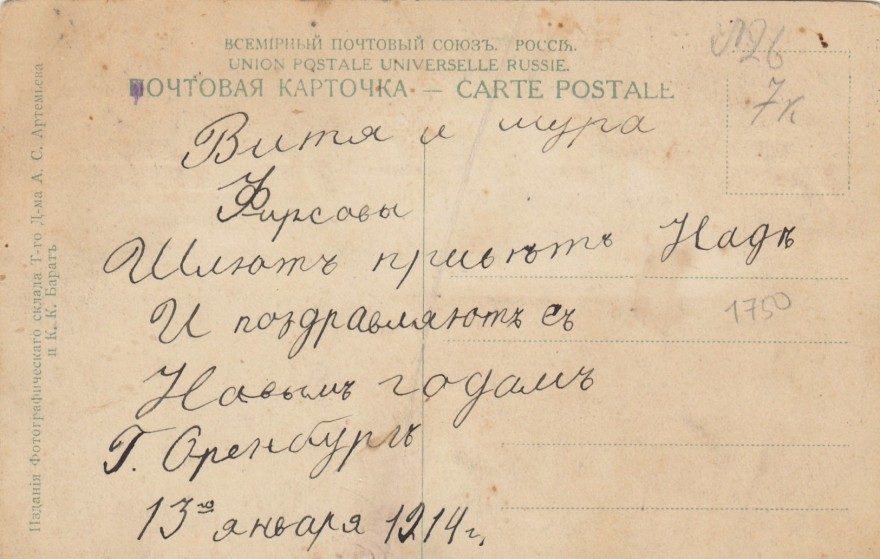 ВСЕМІРНЫЙ ПОЧТОВЫЙ СОЮЗЪ. РОССІЯ.
UNION POSTALE UNIVERSELLE RUSSIE.
ПОЧТОВАЯ КАРТОЧКА — CARTE POSTALE
Витя и мура
Фирсовы
Шлютъ привѣтъ Надѣ
И поздравляютъ съ
Новымъ годамъ
Г. Оренбургъ
13го января 1914 г.
№26
7к
1750
Изданія Фотографическаго склада Т-го Д-ма А. С. Артемьева
и К. К. Баратъ